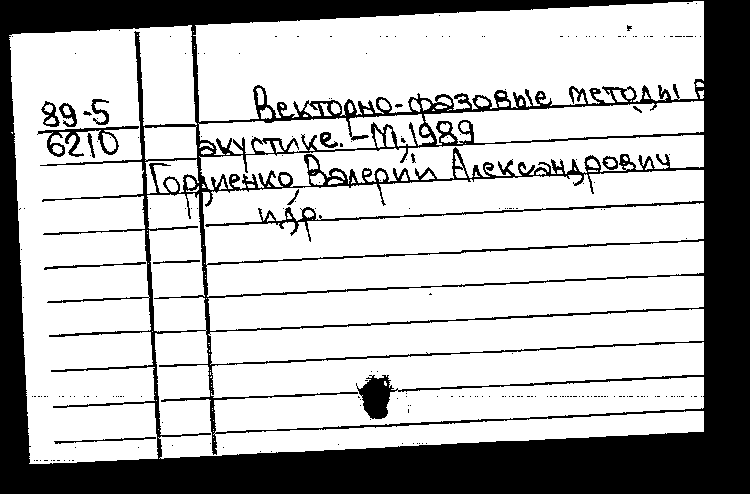 89-5 Векторно-фазовые методы в
6210 акустике. – М, 1989
Гордиенко, Валерий Александрович
и др.